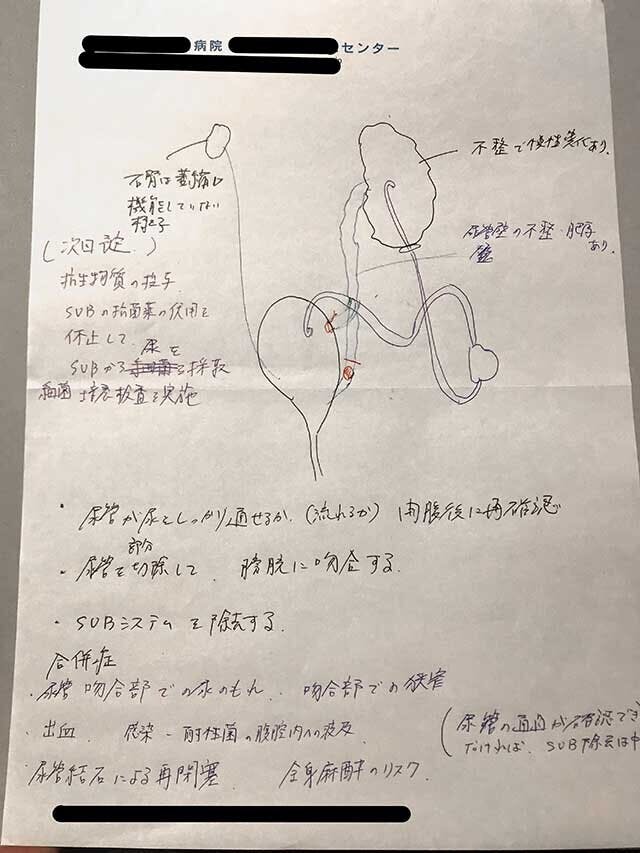 病院 センター
不整で慢性変化あり。
右腎は萎縮し
機能をしていない
様子
尿管壁の不整・肥厚
あり。
(次回迄)
抗生物質の投与
SUBの抗菌薬の使用を
休止して
尿を
SUBから 採取
細菌培養検査を実施
・尿管が尿をしっかり通せるか。(流れるか) 開腹後に再確認
部分
・尿管を切除して、膀胱に吻合する。
・SUBシステムを除去する。
合併症
・尿管吻合部での尿のもれ、吻合部での狭窄
・出血 感染-耐性菌の腹腔内への波及
(尿管の通過が確認でき
なければ、SUB除去は中
尿管結石による再閉塞 全身麻酔のリスク。